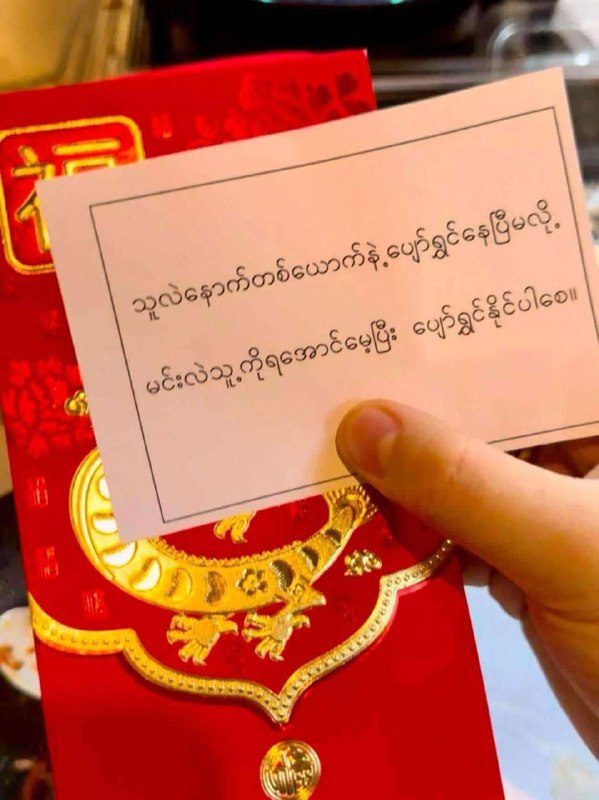 福
သူလဲနောက်တစ်ယောက်နဲ့ပျော်ရွှင်နေပြီမလို့
မင်းလဲသူ့ကိုရအောင်မေ့ပြီး ပျော်ရွှင်နိုင်ပါစေ။